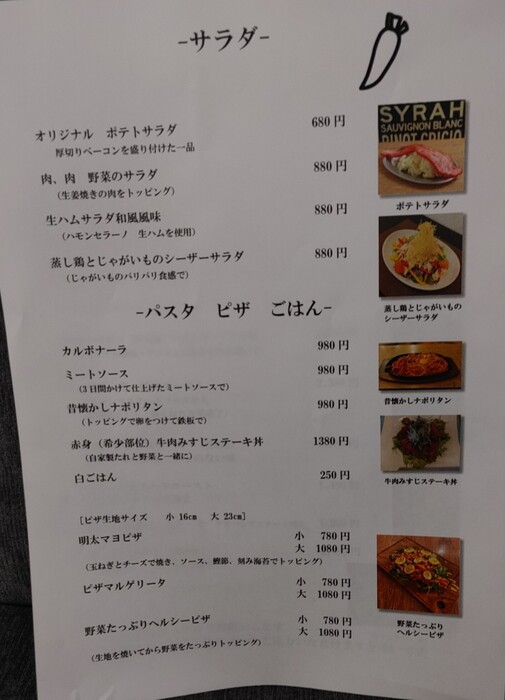 -サラダ-
オリジナル ポテトサラダ 680円
厚切りベーコンを盛り付けた一品
肉、肉 野菜のサラダ 880円
（生姜焼きの肉をトッピング）
生ハムサラダ和風風味 880円
（ハモンセラーノ 生ハムを使用）
蒸し鶏とじゃがいものシーザーサラダ 880円
（じゃがいものパリパリ食感で）
SYRAH
SAUVIGNON BLANC
PINOT GRIGIO
ポテトサラダ
蒸し鶏とじゃがいもの
シーザーサラダ
-パスタ ピザ ごはん-
カルボナーラ 980円
ミートソース 980円
（3日間かけて仕上げたミートソースで）
昔懐かしナポリタン 980円
（トッピングで卵をつけて鉄板で）
赤身（希少部位）牛肉みすじステーキ丼 1380円
（自家製たれと野菜と一緒に）
白ごはん 250円
昔懐かしナポリタン
牛肉みすじステーキ丼
［ピザ生地サイズ 小 16㎝ 大 23㎝］
明太マヨピザ 小 780円
大 1080円
（玉ねぎとチーズで焼き、ソース、鰹節、刻み海苔でトッピング）
ピザマルゲリータ 小 780円
大 1080円
野菜たっぷりヘルシーピザ 小 780円
大 1080円
（生地を焼いてから野菜をたっぷりトッピング）
野菜たっぷり
ヘルシーピザ